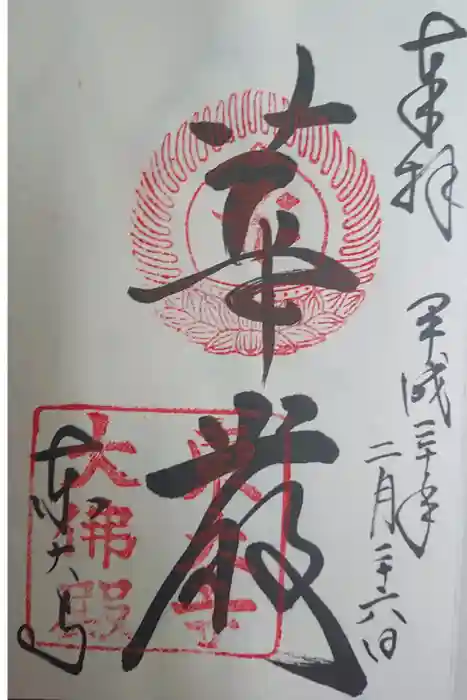 奉拝
平成三十年
二月二十六日
華嚴
東大寺
大佛殿
東大寺